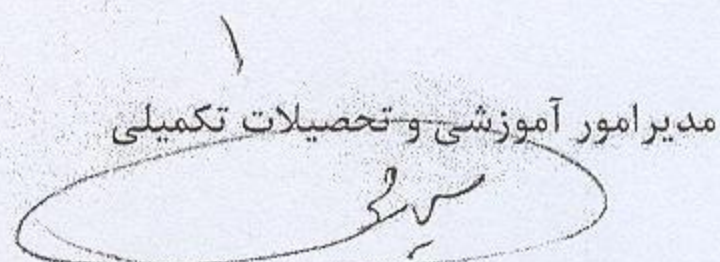 مدیر امور آموزشی و تحصیلات تکمیلی